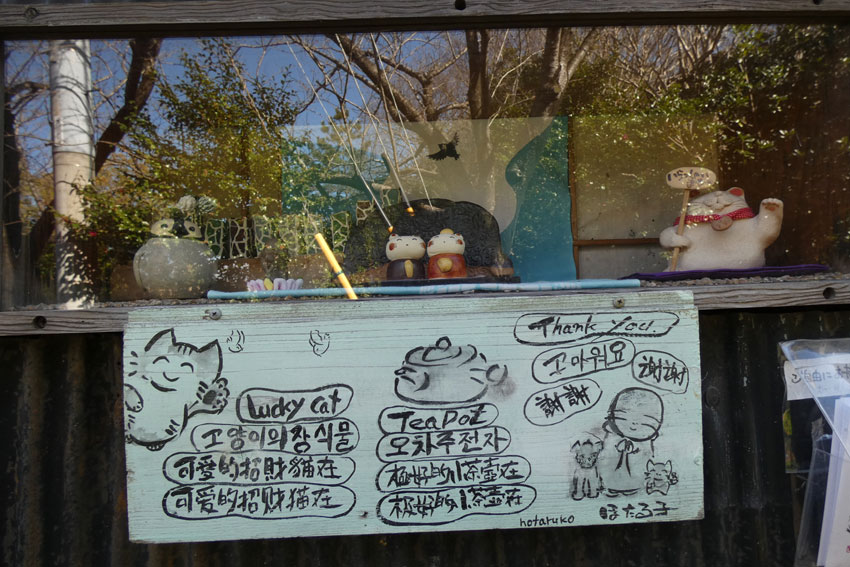 Lucky cat
고양이의장식물
可愛的招財貓在
可爱的招财猫在
TeaPoZ
오차주전자
極好的茶壺在
极好的茶壶在
Thank you.
고마워요
謝謝
谢谢
hotaruko
ほたる子
ご自由に